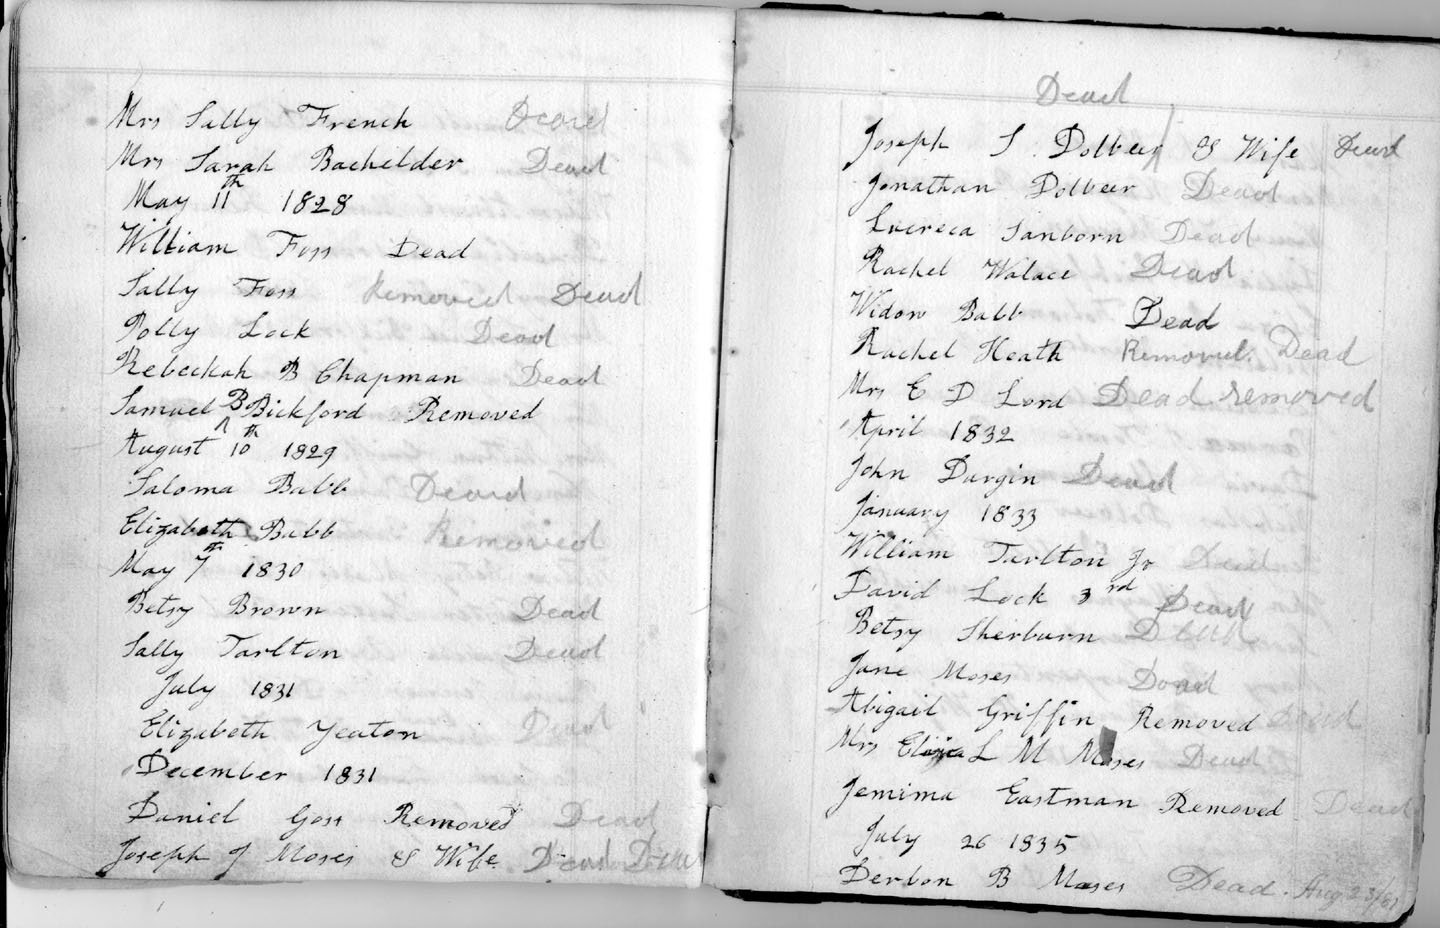 Mrs Sally French Dead
Mrs Sarah Bachelder Dead
May 11th 1828
William Foss Dead
Sally Foss Removed Dead
Polly Lock Dead
Rebeckah B Chapman Dead
Samuel B Bickford Removed
August 10th 1829
Saloma Babb Dead
Elizabeth Babb Removed
May 7th 1830
Betsy Brown Dead
Sally Tarlton Dead
July 1831
Elizabeth Yeaton Dead
December 1831
Daniel Goss Removed Dead
Joseph J Moses & Wife Dead Dead
Dead
Joseph S Dolbeer & Wife Dead
Jonathan Dolbeer Dead
Lucreca Sanborn Dead
Rachel Walace Dead
Widow Babb Dead
Rachel Heath Removed. Dead
Mrs E D Lord Dead removed
April 1832
John Durgin Dead
January 1833
William Tarlton Jr Dead
David Lock 3rd Dead
Betsy Sherburn Dead
Jane Moses Dead
Abigail Griffin Removed Dead
Mrs Eliza L M Moses Dead
Jemima Eastman Removed Dead
July 26 1835
Derbon B Moses Dead. Aug 23/81